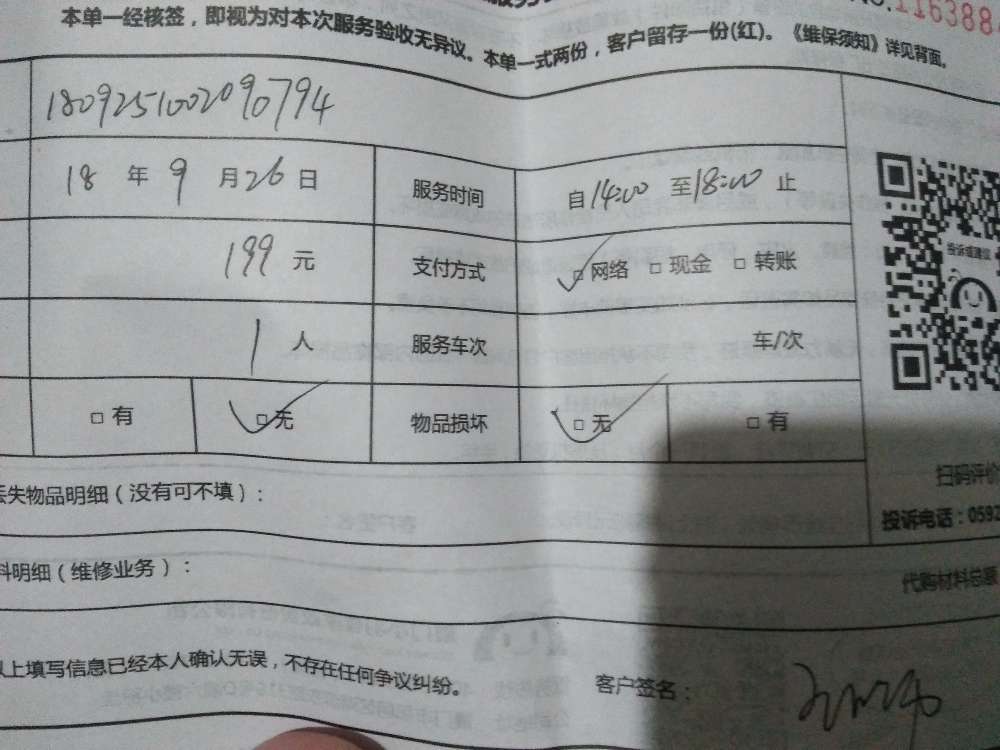 NO.116388
本单一经核签，即视为对本次服务验收无异议。本单一式两份，客户留存一份(红)。《维保须知》详见背面。
180925100209 0794
18 年 9 月 26 日 服务时间 自 14:00 至 18:00 止
199 元 支付方式 □网络 □现金 □转账
1 人 服务车次 车/次
□有 □无 物品损坏 □无 □有
投诉或建议
扫码评价
丢失物品明细（没有可不填）：
投诉电话：0592
料明细（维修业务）：
代购材料总额
以上填写信息已经本人确认无误，不存在任何争议纠纷。 客户签名：